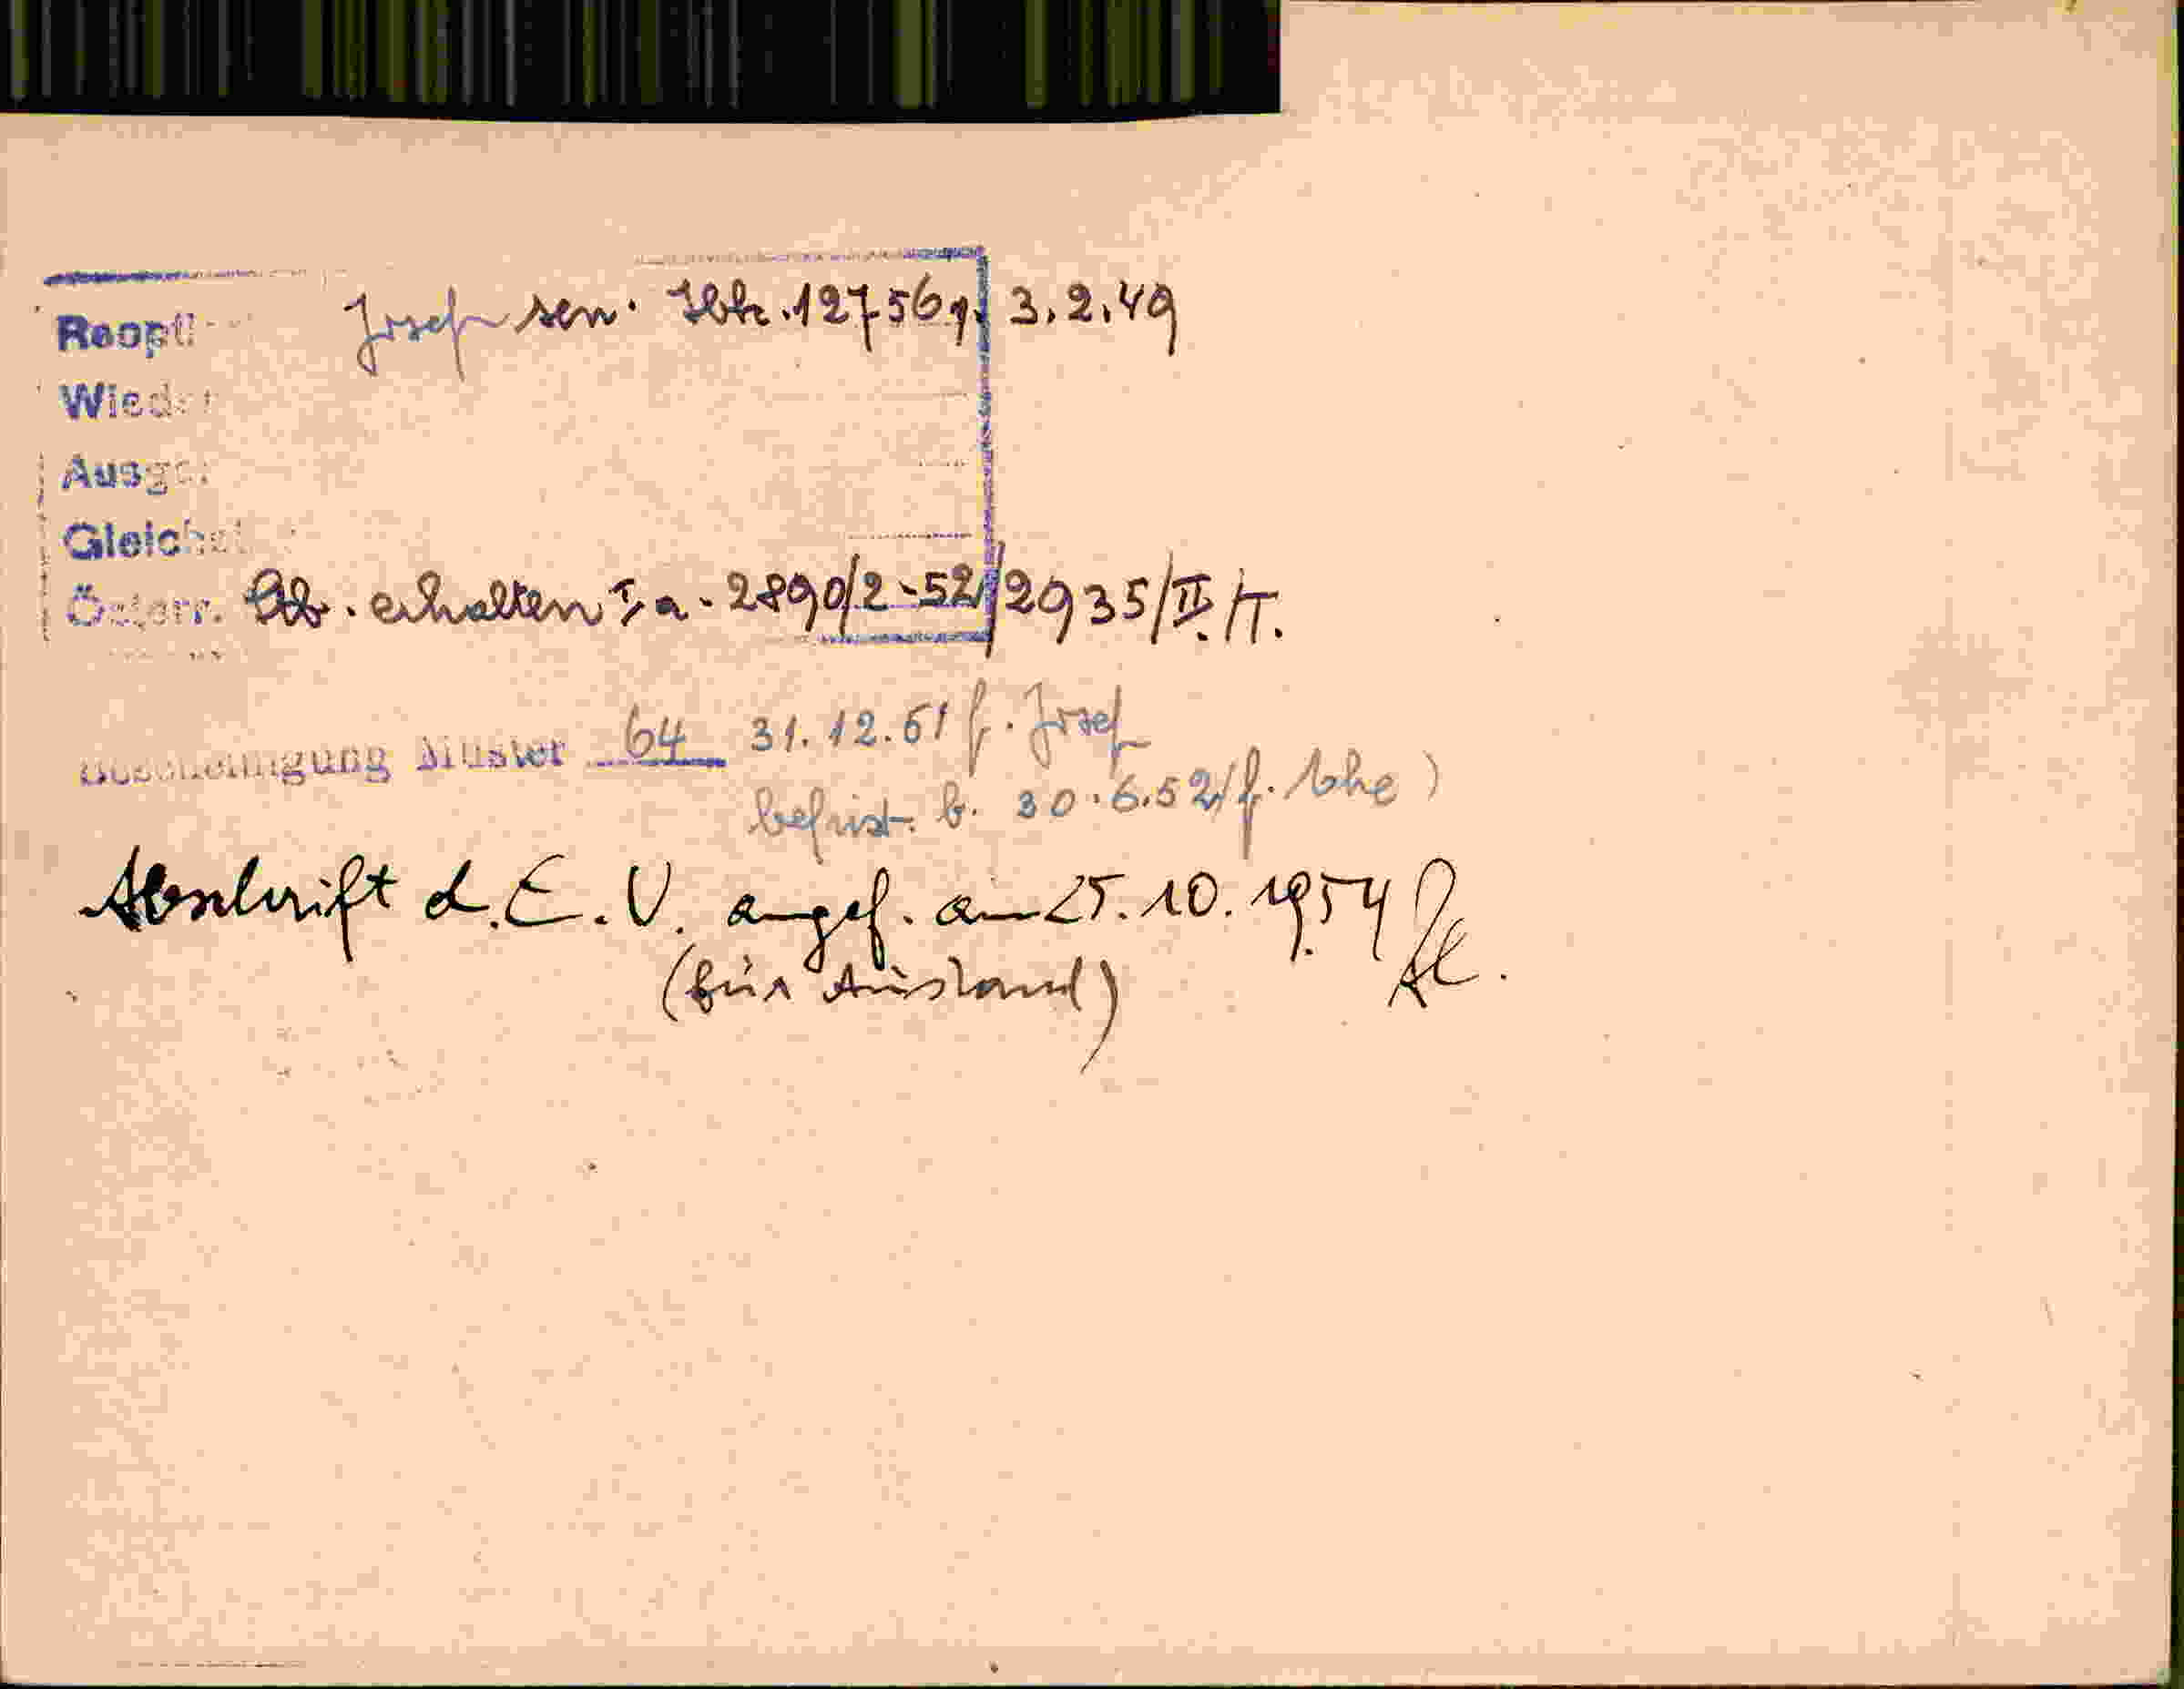 Reopti
Josef sen. Ibk. 127569. 3.2.49
Wieder
Ausge
Gleichst
Österr. Stb. erhalten I a - 2890/2-52/2935/II./T.
Bescheinigung Muster 64 31.12.51 f. Josef
befrist. b. 30.6.52/f. )
Abschrift d. E. V. angef. am 25.10.1954
(für Ausland)